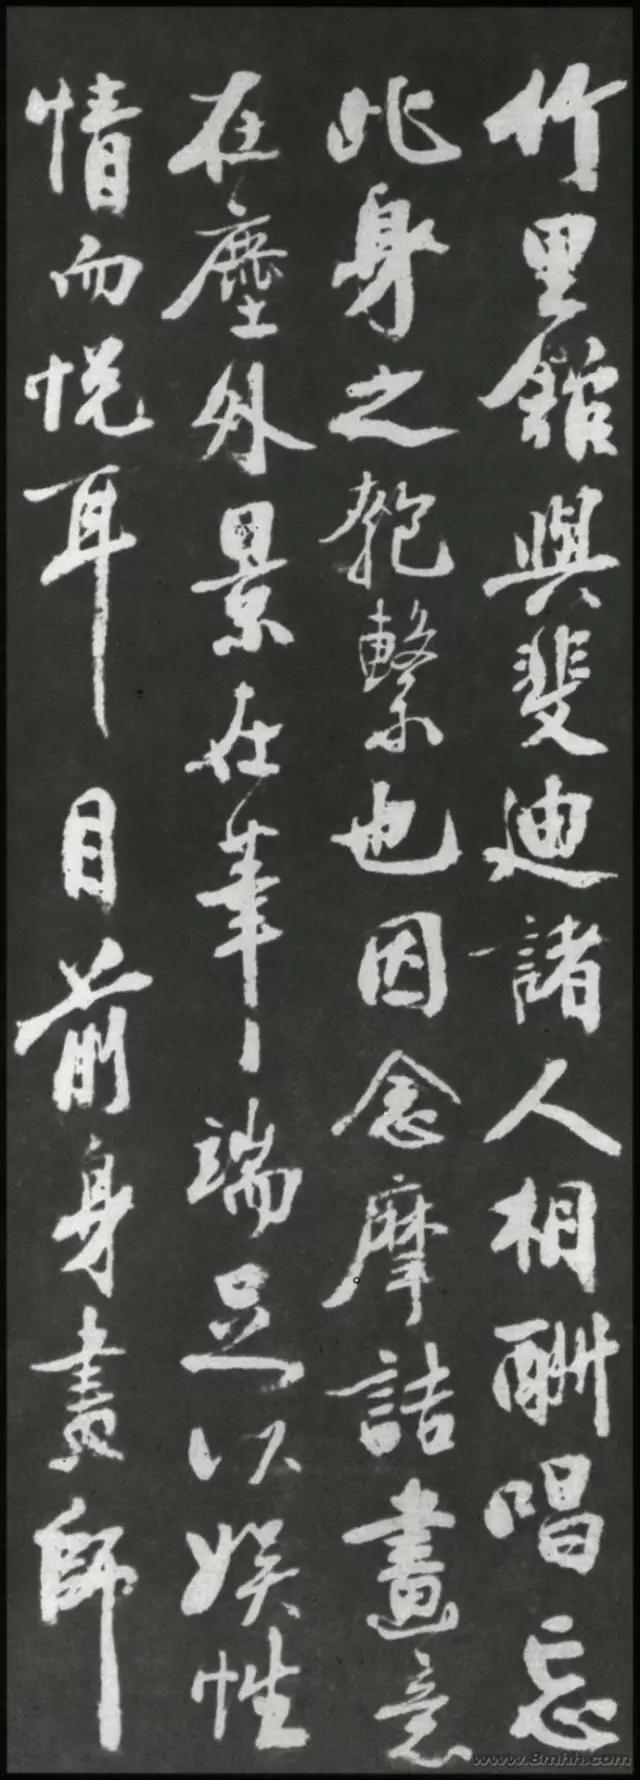 竹里館與斐迪諸人相酬唱忘
此身之匏繫也因念摩詰畫意
在塵外景在筆端足以娛性
情而悅耳目前身畫師
www.8mhh.com